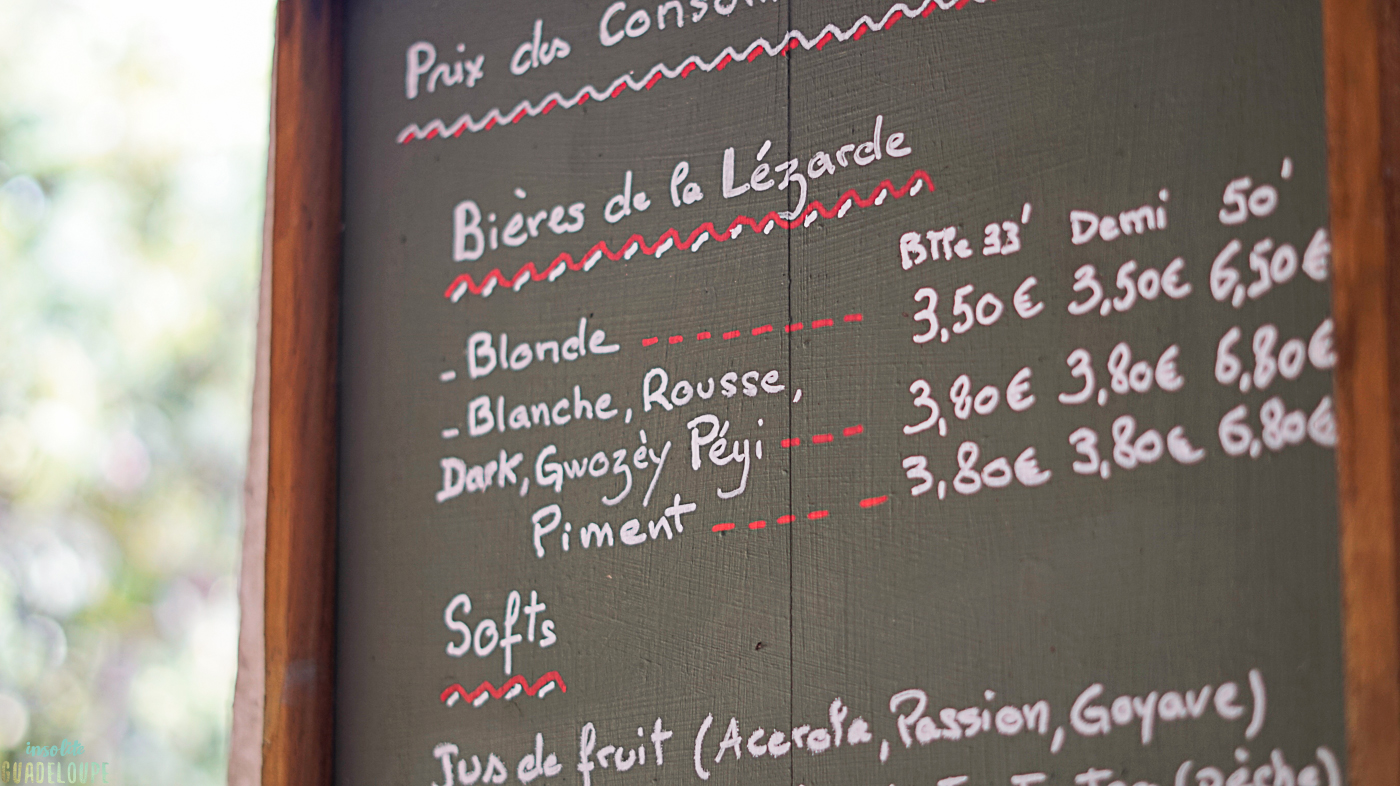 Prix des
Bières de la Lézarde
Btle 33' Demi 50'
_ Blonde ------- 3,50€ 3,50€ 6,50€
_ Blanche, Rousse,
Dark, Gwozèy Péyi --- 3,80€ 3,80€ 6,80€
Piment ---- - 3,80€ 3,80€ 6,80€
Softs
Jus de fruit (Acerola, Passion, Goyave)
(pêche)
insolite
GUADELOUPE